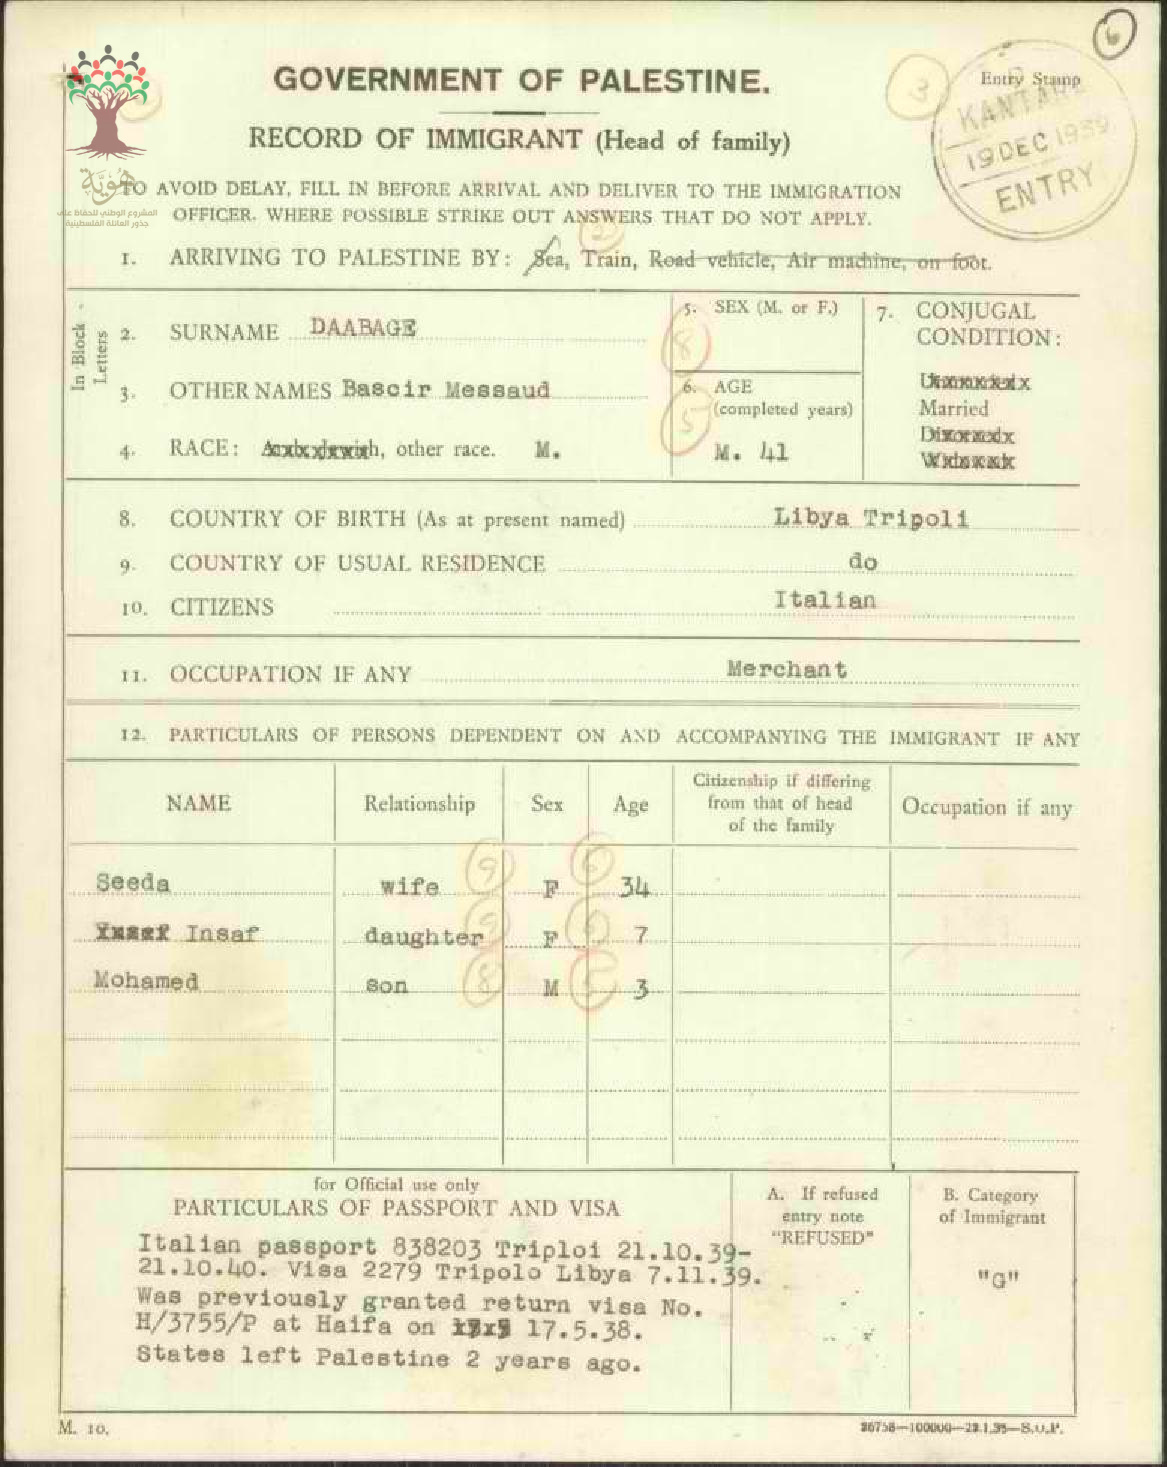 6
GOVERNMENT OF PALESTINE.
RECORD OF IMMIGRANT (Head of family)
3
Entry Stamp
KANTARA
19 DEC 1939
ENTRY
هوية
المشروع الوطني للحفاظ على
جذور العائلة الفلسطينية
TO AVOID DELAY, FILL IN BEFORE ARRIVAL AND DELIVER TO THE IMMIGRATION
OFFICER. WHERE POSSIBLE STRIKE OUT ANSWERS THAT DO NOT APPLY.
2
1. ARRIVING TO PALESTINE BY: Sea, Train, Road vehicle, Air machine, on foot.
In Block Letters
2. SURNAME DAABAGE
3. OTHER NAMES Bascir Messaud
4. RACE: other race. M.
5. SEX (M. or F.)
8
6. AGE
(completed years)
5
M. 41
7. CONJUGAL
CONDITION:
Married
8. COUNTRY OF BIRTH (As at present named) Libya Tripoli
9. COUNTRY OF USUAL RESIDENCE do
10. CITIZENS Italian
11. OCCUPATION IF ANY Merchant
12. PARTICULARS OF PERSONS DEPENDENT ON AND ACCOMPANYING THE IMMIGRANT IF ANY
NAME Relationship Sex Age Citizenship if differing from that of head of the family Occupation if any
Seeda wife 9 F 6 34
Insaf daughter 9 F 6 7
Mohamed son 8 M 5 3
for Official use only
PARTICULARS OF PASSPORT AND VISA
Italian passport 838203 Triploi 21.10.39-
21.10.40. Visa 2279 Tripolo Libya 7.11.39.
Was previously granted return visa No.
H/3755/P at Haifa on 17.5.38.
States left Palestine 2 years ago.
A. If refused
entry note
"REFUSED"
B. Category
of Immigrant
"G"
M. 10.
26758—100000—22.1.35—S.O.P.